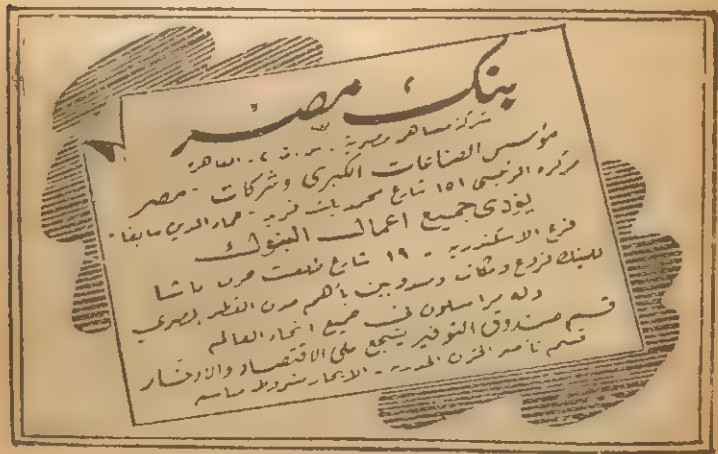 بنك مصر
شركة مساهمة مصرية - س. ت ٢ - القاهرة
مؤسس الصناعات الكبرى وشركات - مصر
مركزه الرئيسى ١٥١ شارع محمد بك فريد - عماد الدين سابقا -
يؤدى جميع اعمال البنوك
فرع الاسكندرية - ١٩ شارع طلعت حرب باشا
للبنك فروع ومكاتب ومندوبين بأهم مدن القطر المصرى
وله مراسلون فى جميع انحاء العالم
قسم صندوق التوفير يشجع على الاقتصاد والادخار
قسم تأجير الخزن الحديدية - الايجار بشروط مناسبة